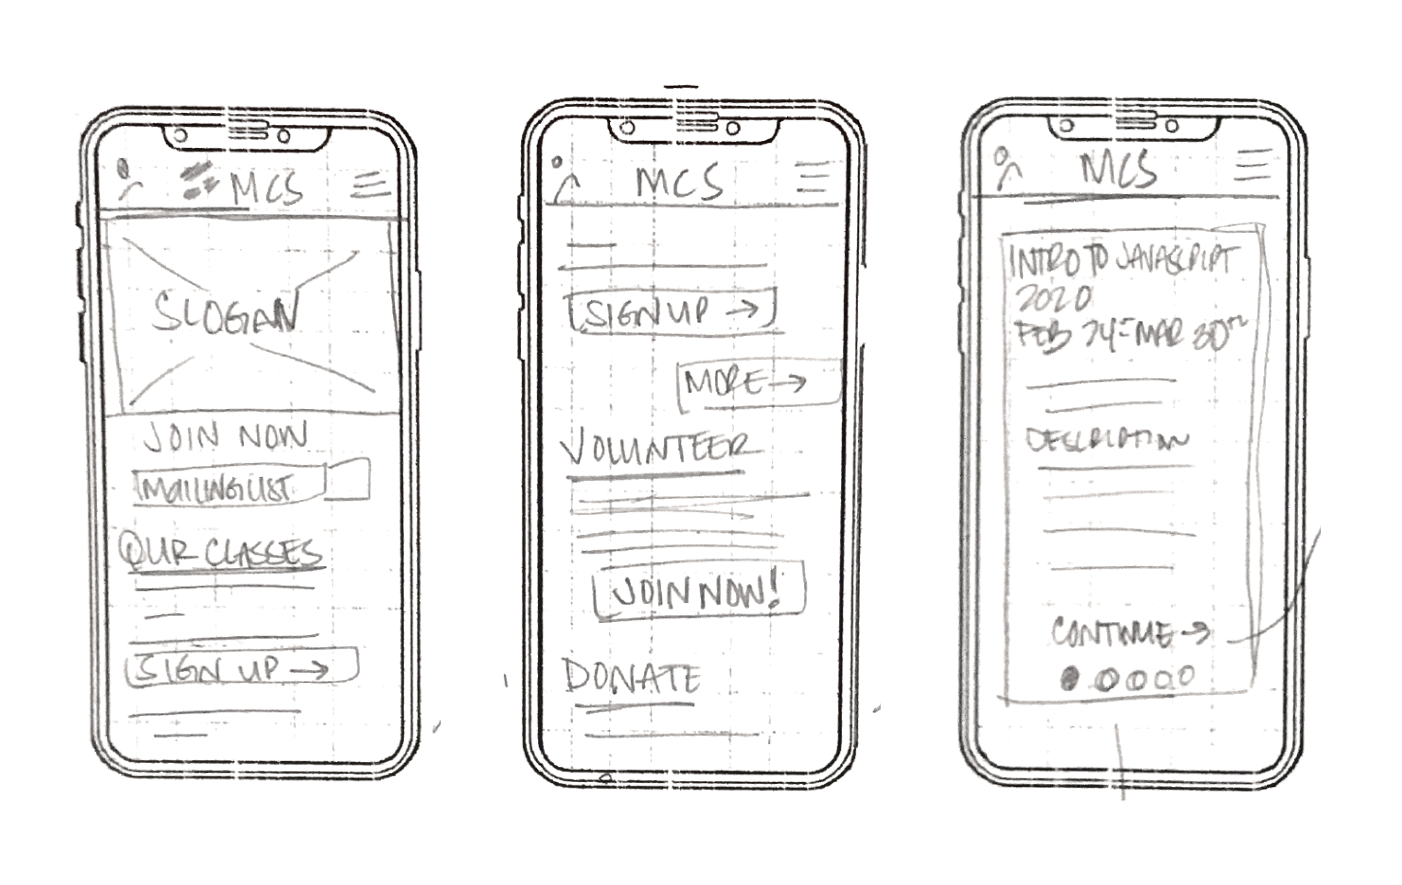 MCS
SLOGAN
JOIN NOW
MAILING LIST
OUR CLASSES
SIGN UP →
MCS
SIGN UP →
MORE →
VOLUNTEER
JOIN NOW!
DONATE
MCS
INTRO TO JAVASCRIPT
2020
FEB 24TH - MAR 30TH
DESCRIPTION
CONTINUE →